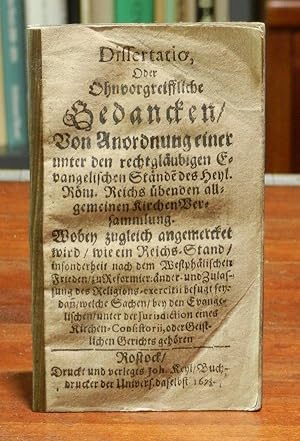 Dissertatio,
Oder
Ohnvorgreiffliche
Gedancken/
Von Anordnung einer
unter den rechtgläubigen E-
vangelischen Stände des Heyl.
Röm. Reichs übenden all-
gemeinen Kirchen Ver-
sammlung.
Wobey zugleich angemercket
wird/ wie ein Reichs-Stand/
insonderheit nach dem Westphälischen
Frieden/ zu Reformier: änder- und Zulas-
sung des Religions-exercitii befugt sey:
dañ/ welche Sachen/ bey den Evange-
lischen/ unter der Jurisdiction eines
Kirchen-Consistorii, oder Geist-
lichen Gerichts gehören
Rostock/
Druckts und verlegts Joh. Keyl/ Buch-
drucker der Univers. daselbst